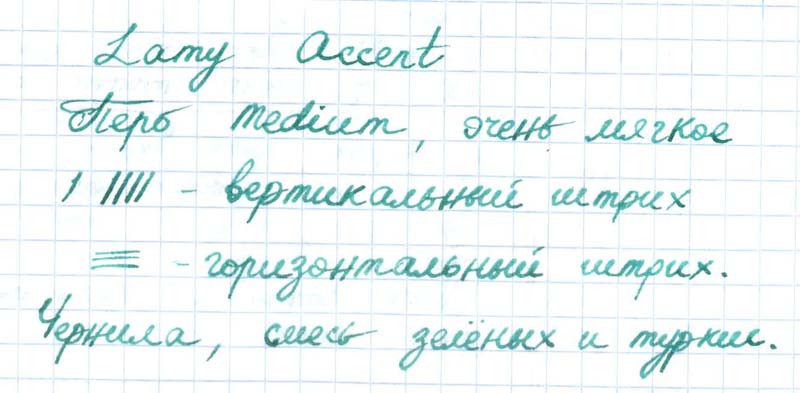 Lamy Accent
Перо medium, очень мягкое
| |||| - вертикальный штрих
≡ - горизонтальный штрих.
Чернила, смесь зелёных и туркис.